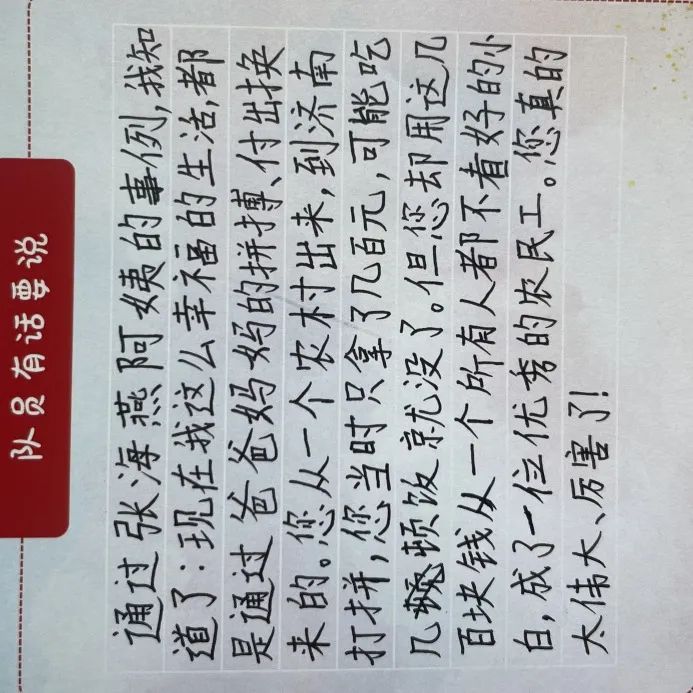 队员有话要说
通过张海燕阿姨的事例,我知
道了:现在我这么幸福的生活,都
是通过爸爸妈妈的拼搏、付出换
来的。您从一个农村出来,到济南
打拼,您当时只拿了几百元,可能吃
几顿饭就没了。但您却用这几
百块钱从一个所有人都不看好的小
白,成了一位优秀的农民工。您真的
太伟大、厉害了!